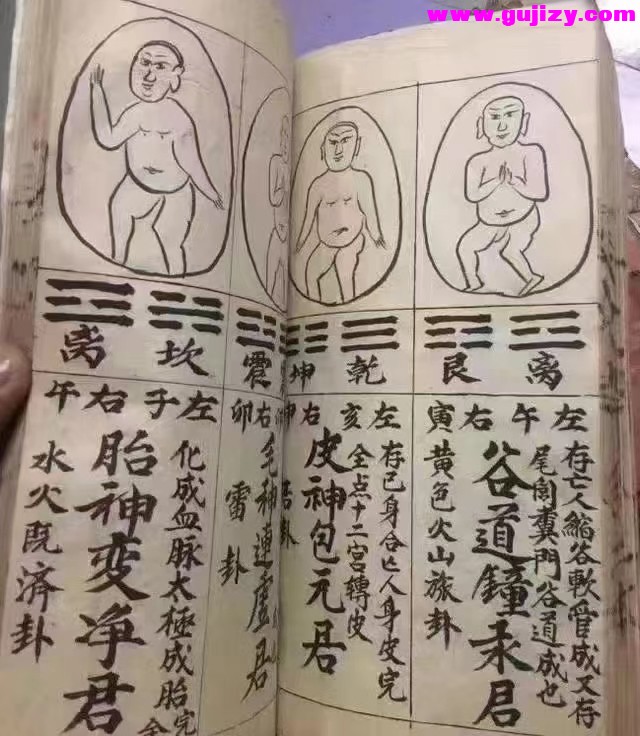 www.gujizy.com
离 艮
左 午 右 寅
存亡人縮谷軟管成又存
尾閭糞門谷道成也
谷道鐘永君
黄色火山旅卦
乾 坤
左 亥 右 申
存已身合亡人身皮完
全点十二宮轉皮
皮神包元君
卦
震
右 卯
毛神連盧君
雷卦
坎 离
左 子 右 午
化成血脉太極成胎完全
胎神变净君
水火既济卦